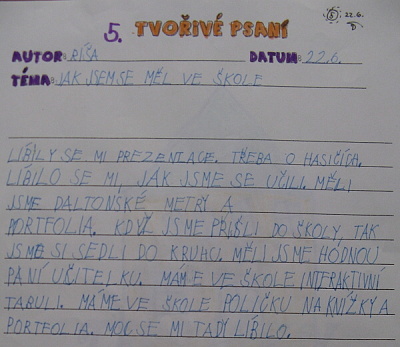 5. TVOŘIVÉ PSANÍ
5 22.6.
AUTOR: RÍŠA DATUM: 22.6.
TÉMA: JAK JSEM SE MĚL VE ŠKOLE
LÍBILY SE MI PREZENTACE. TŘEBA O HASIČÍCH.
LÍBILO SE MI, JAK JSME SE UČILI. MĚLI
JSME DALTONSKÉ METRY A
PORTFOLIA. KDYŽ JSME PŘIŠLI DO ŠKOLY, TAK
JSME SI SEDLI DO KRUHU. MĚLI JSME HODNOU
PANÍ UČITELKU. MÁME VE ŠKOLE INTERAKTIVNÍ
TABULI. MÁME VE ŠKOLE POLIČKU NA KNÍŽKY A
PORTFOLIA. MOC SE MI TADY LÍBILO.